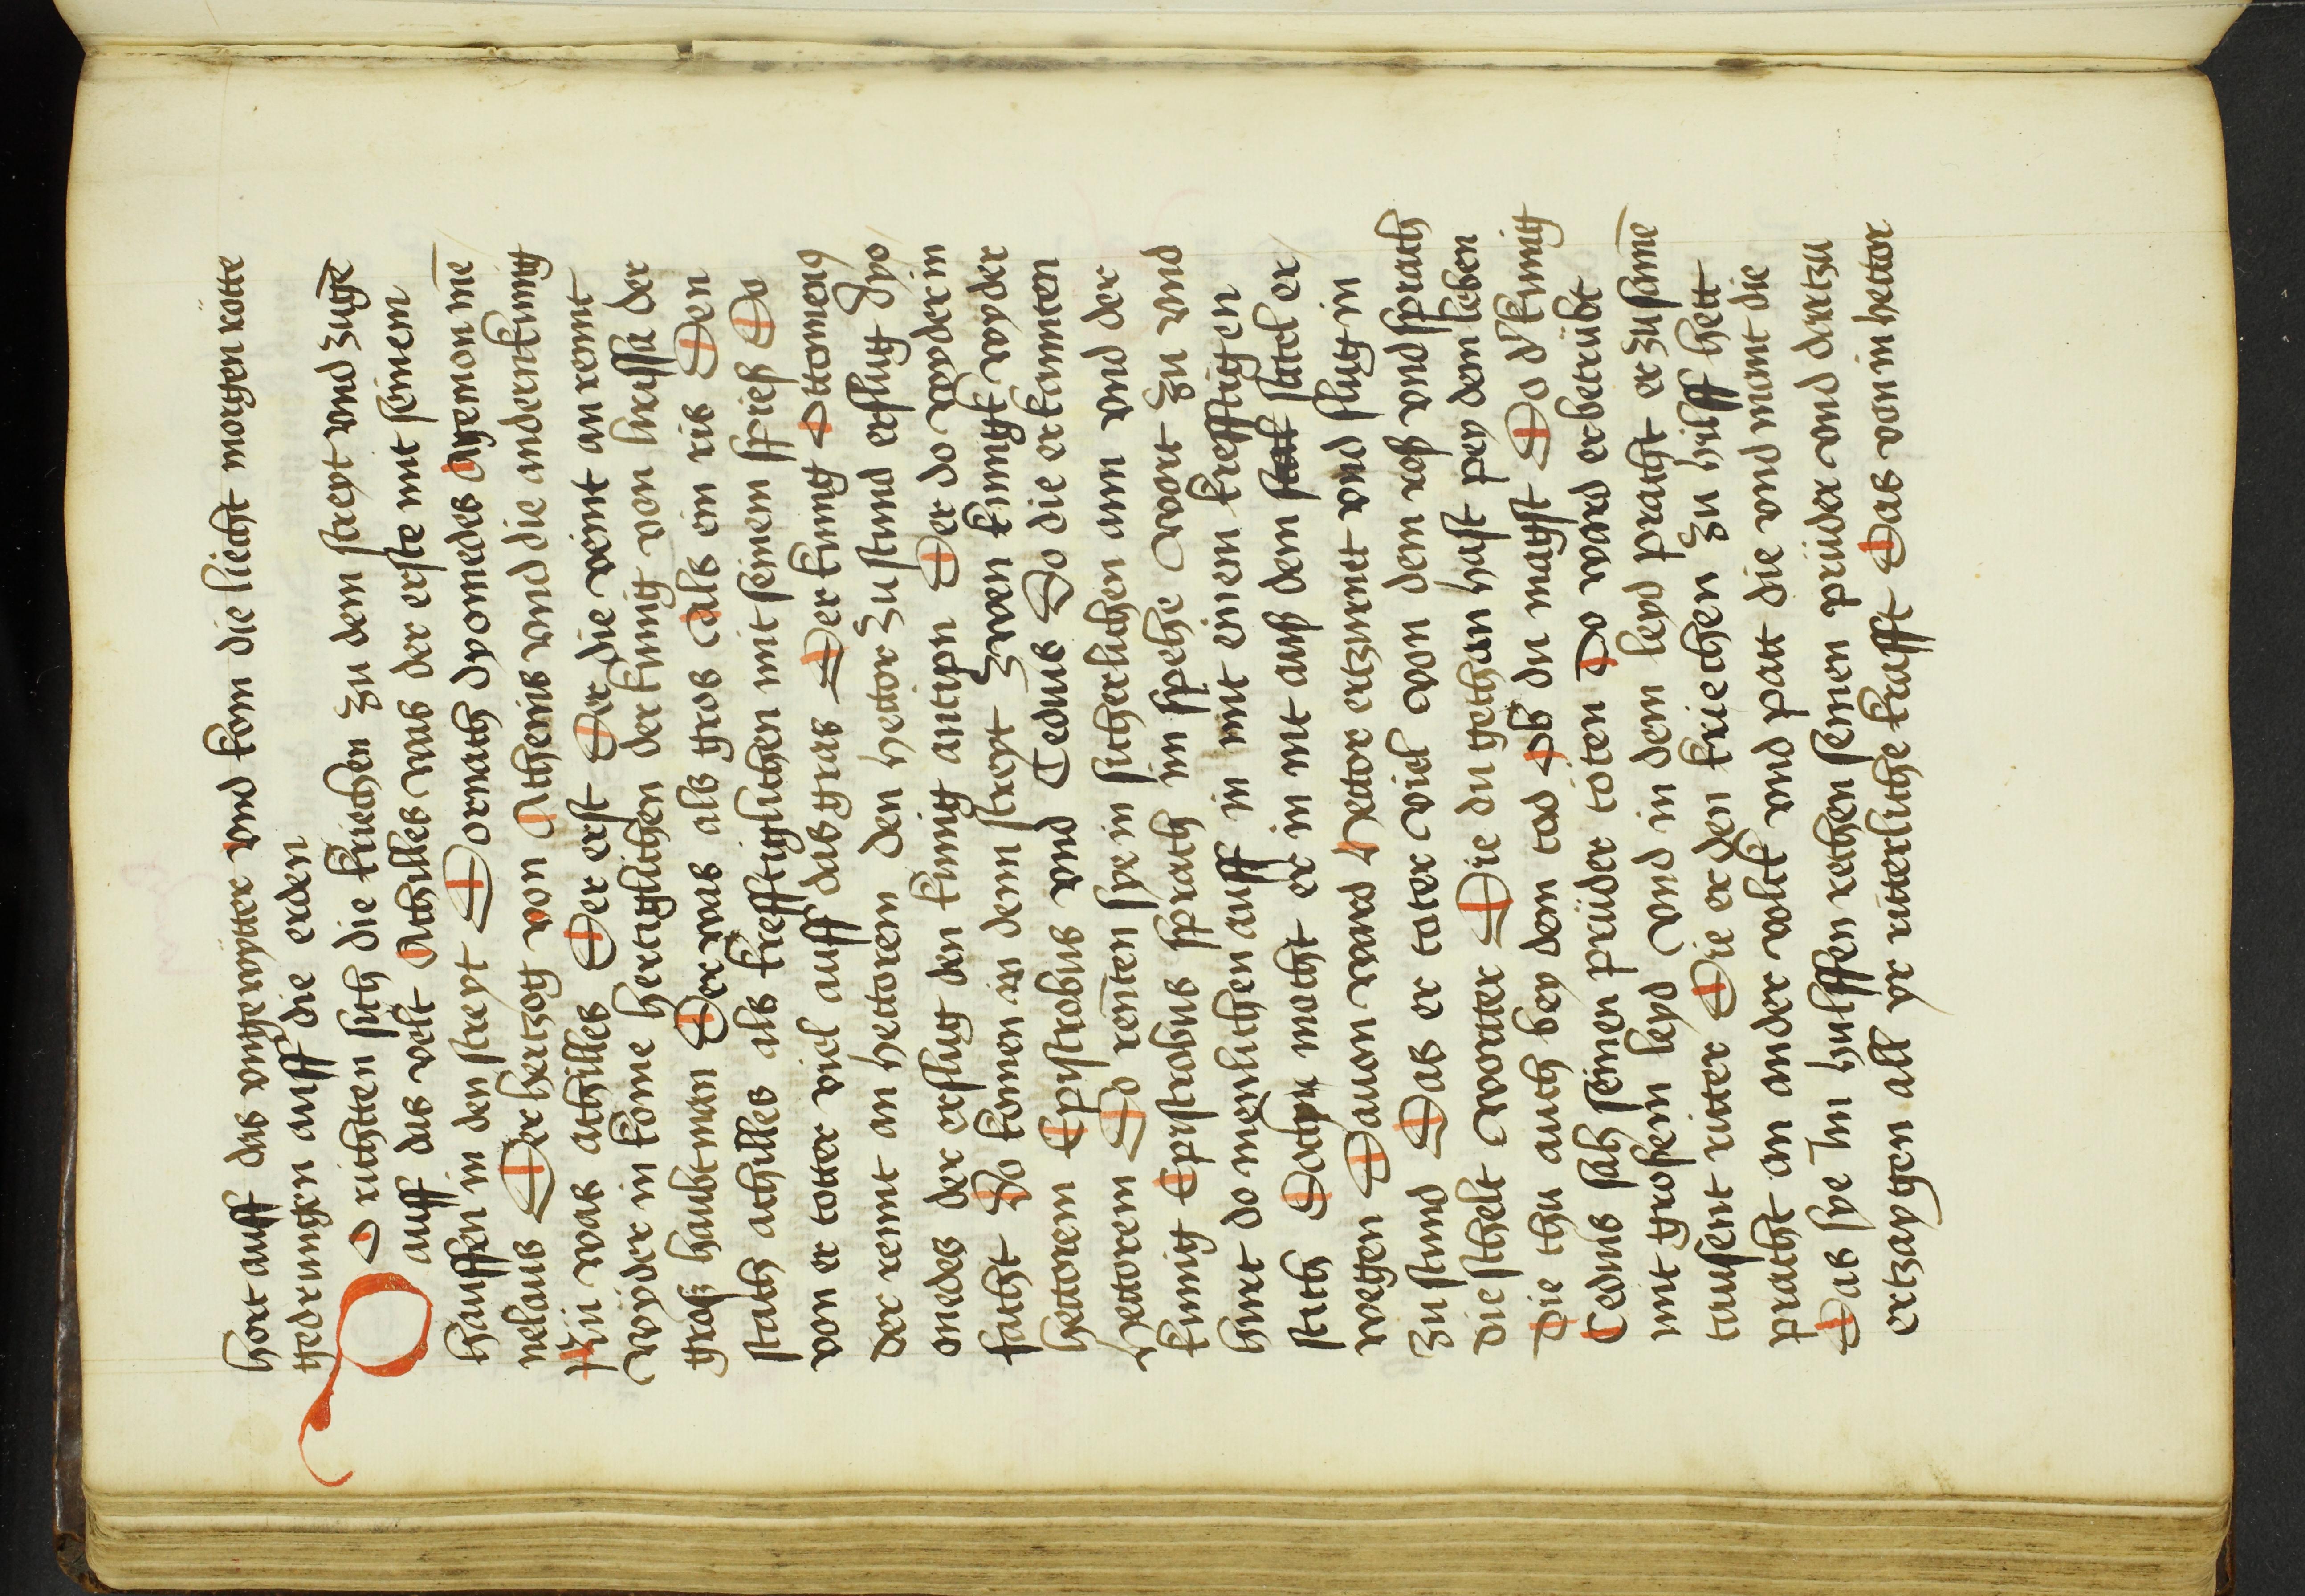 hort auff das vngewytter vnd kom die liecht morgen rötte
gedrungen auff die erden
DO richtten sich die kriechen zu dem streyt vnd zuge̅
auff das velt Achilles was der erste mit seinem
hauffen in den streyt Dornach dyomedes Agemon me̅
nelaus Der hertzog von Athenis vnd die andern kunig
was achilles Der erst Der die veint an rennt
wyder in kome hertziglichen der kunig von hrassa der
groß haubtman Der was als gros Als ein ris Den
stach achilles als krefftiglichen mit seinem spieß Do
von er totter viel auff das gras Der kunig Ottomeꝰ
der rennt an hettorem den hettor zu stund erslug dyo
medes der erslug den kunig antipn Der do wyder in
facht Do komen in denn streyt zwen kunigk wyder
hettorem Epystrobus vnd Cedius Do die erkannten
hettorem Do rennten sye in sicherlichen ann vnd der
kunig Epistrobus sprach im spehe wort zu vnd
hurt do menlichen auff in mit einem krefftigen
stich Do mocht er in nit auß dem satel er
wegen Dauon ward hettor ertzurnet vnd slug in
zu stund Das er toter viel von dem roß vnd sprach
die schelt wortter Die du gethan hast pey dem leben
Die thu auch bey dem tod Ob du magst Do d' kunig
Cedius sach seinen prüder töten Do ward er betrübt
mit grosem leyd vnd in dem leyd pracht er zu sam̅e
tausent ritter Die er den kriechen zu hilff hett
pracht an ander volk vnd patt die vnd mant die
Das sye Im hulffen rechen seinen prüder vnd dartzu
ertzaygen all yr ritterliche krafft Das von in hettor